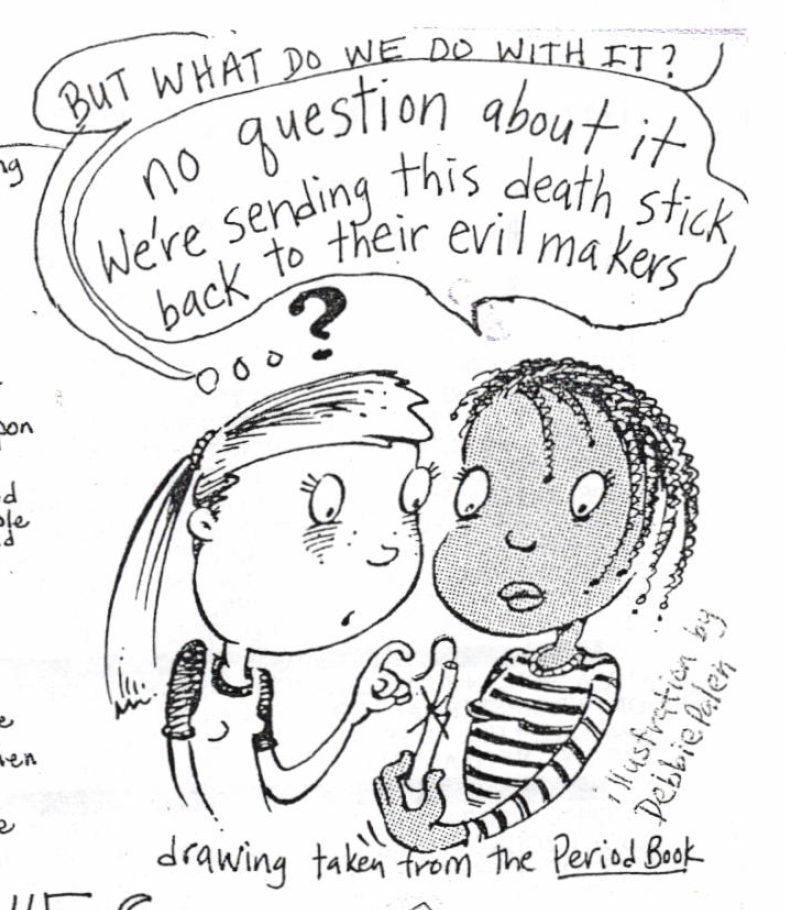 BUT WHAT DO WE DO WITH IT?
no question about it
We're sending this death stick
back to their evil makers
?
illustration by
Debbie Palen
drawing taken from the Period Book